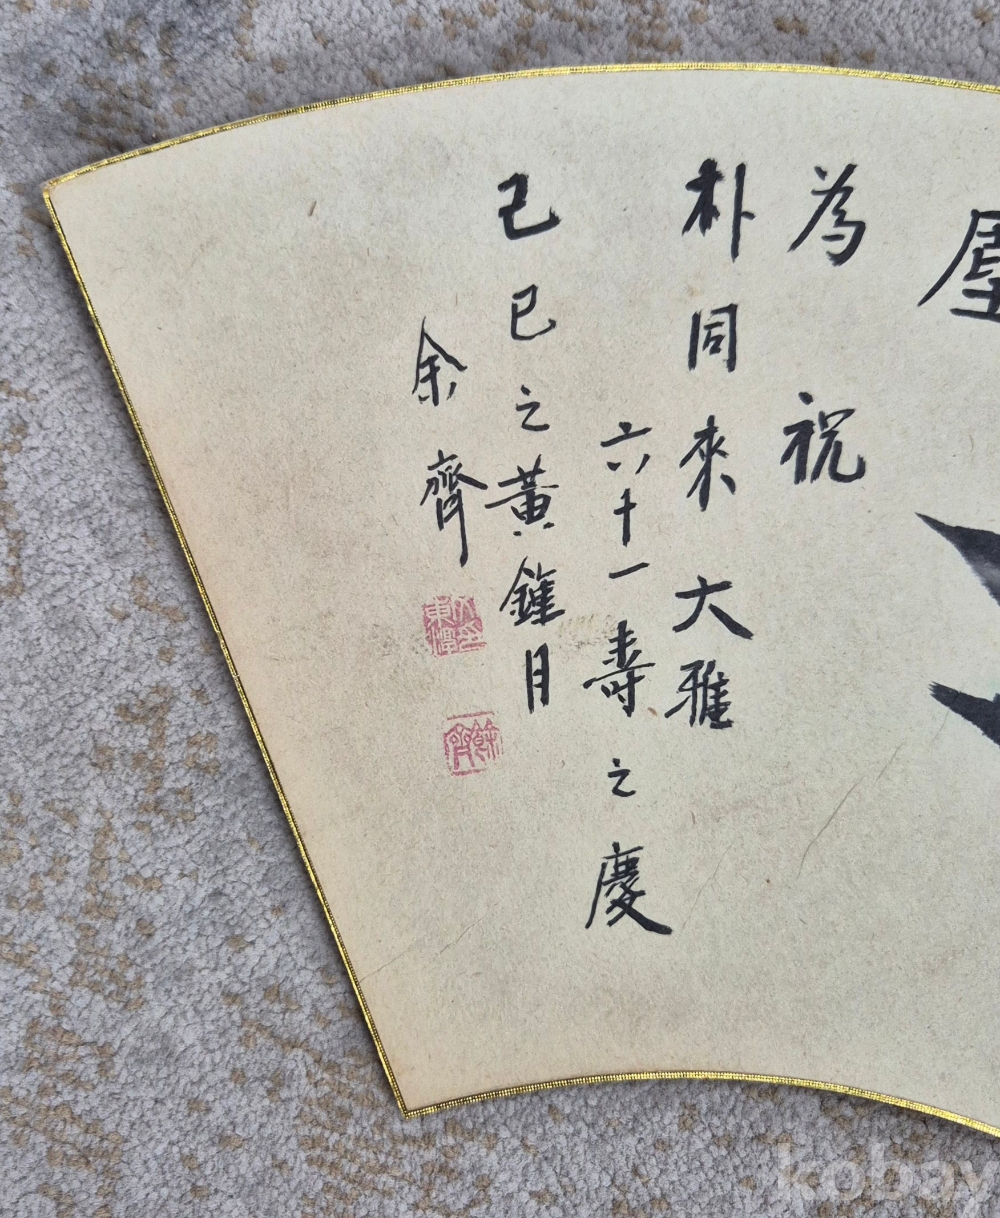 塵
為祝
朴同來大雅
六十一壽之慶
己巳之黃鍾月
余齊
kobay